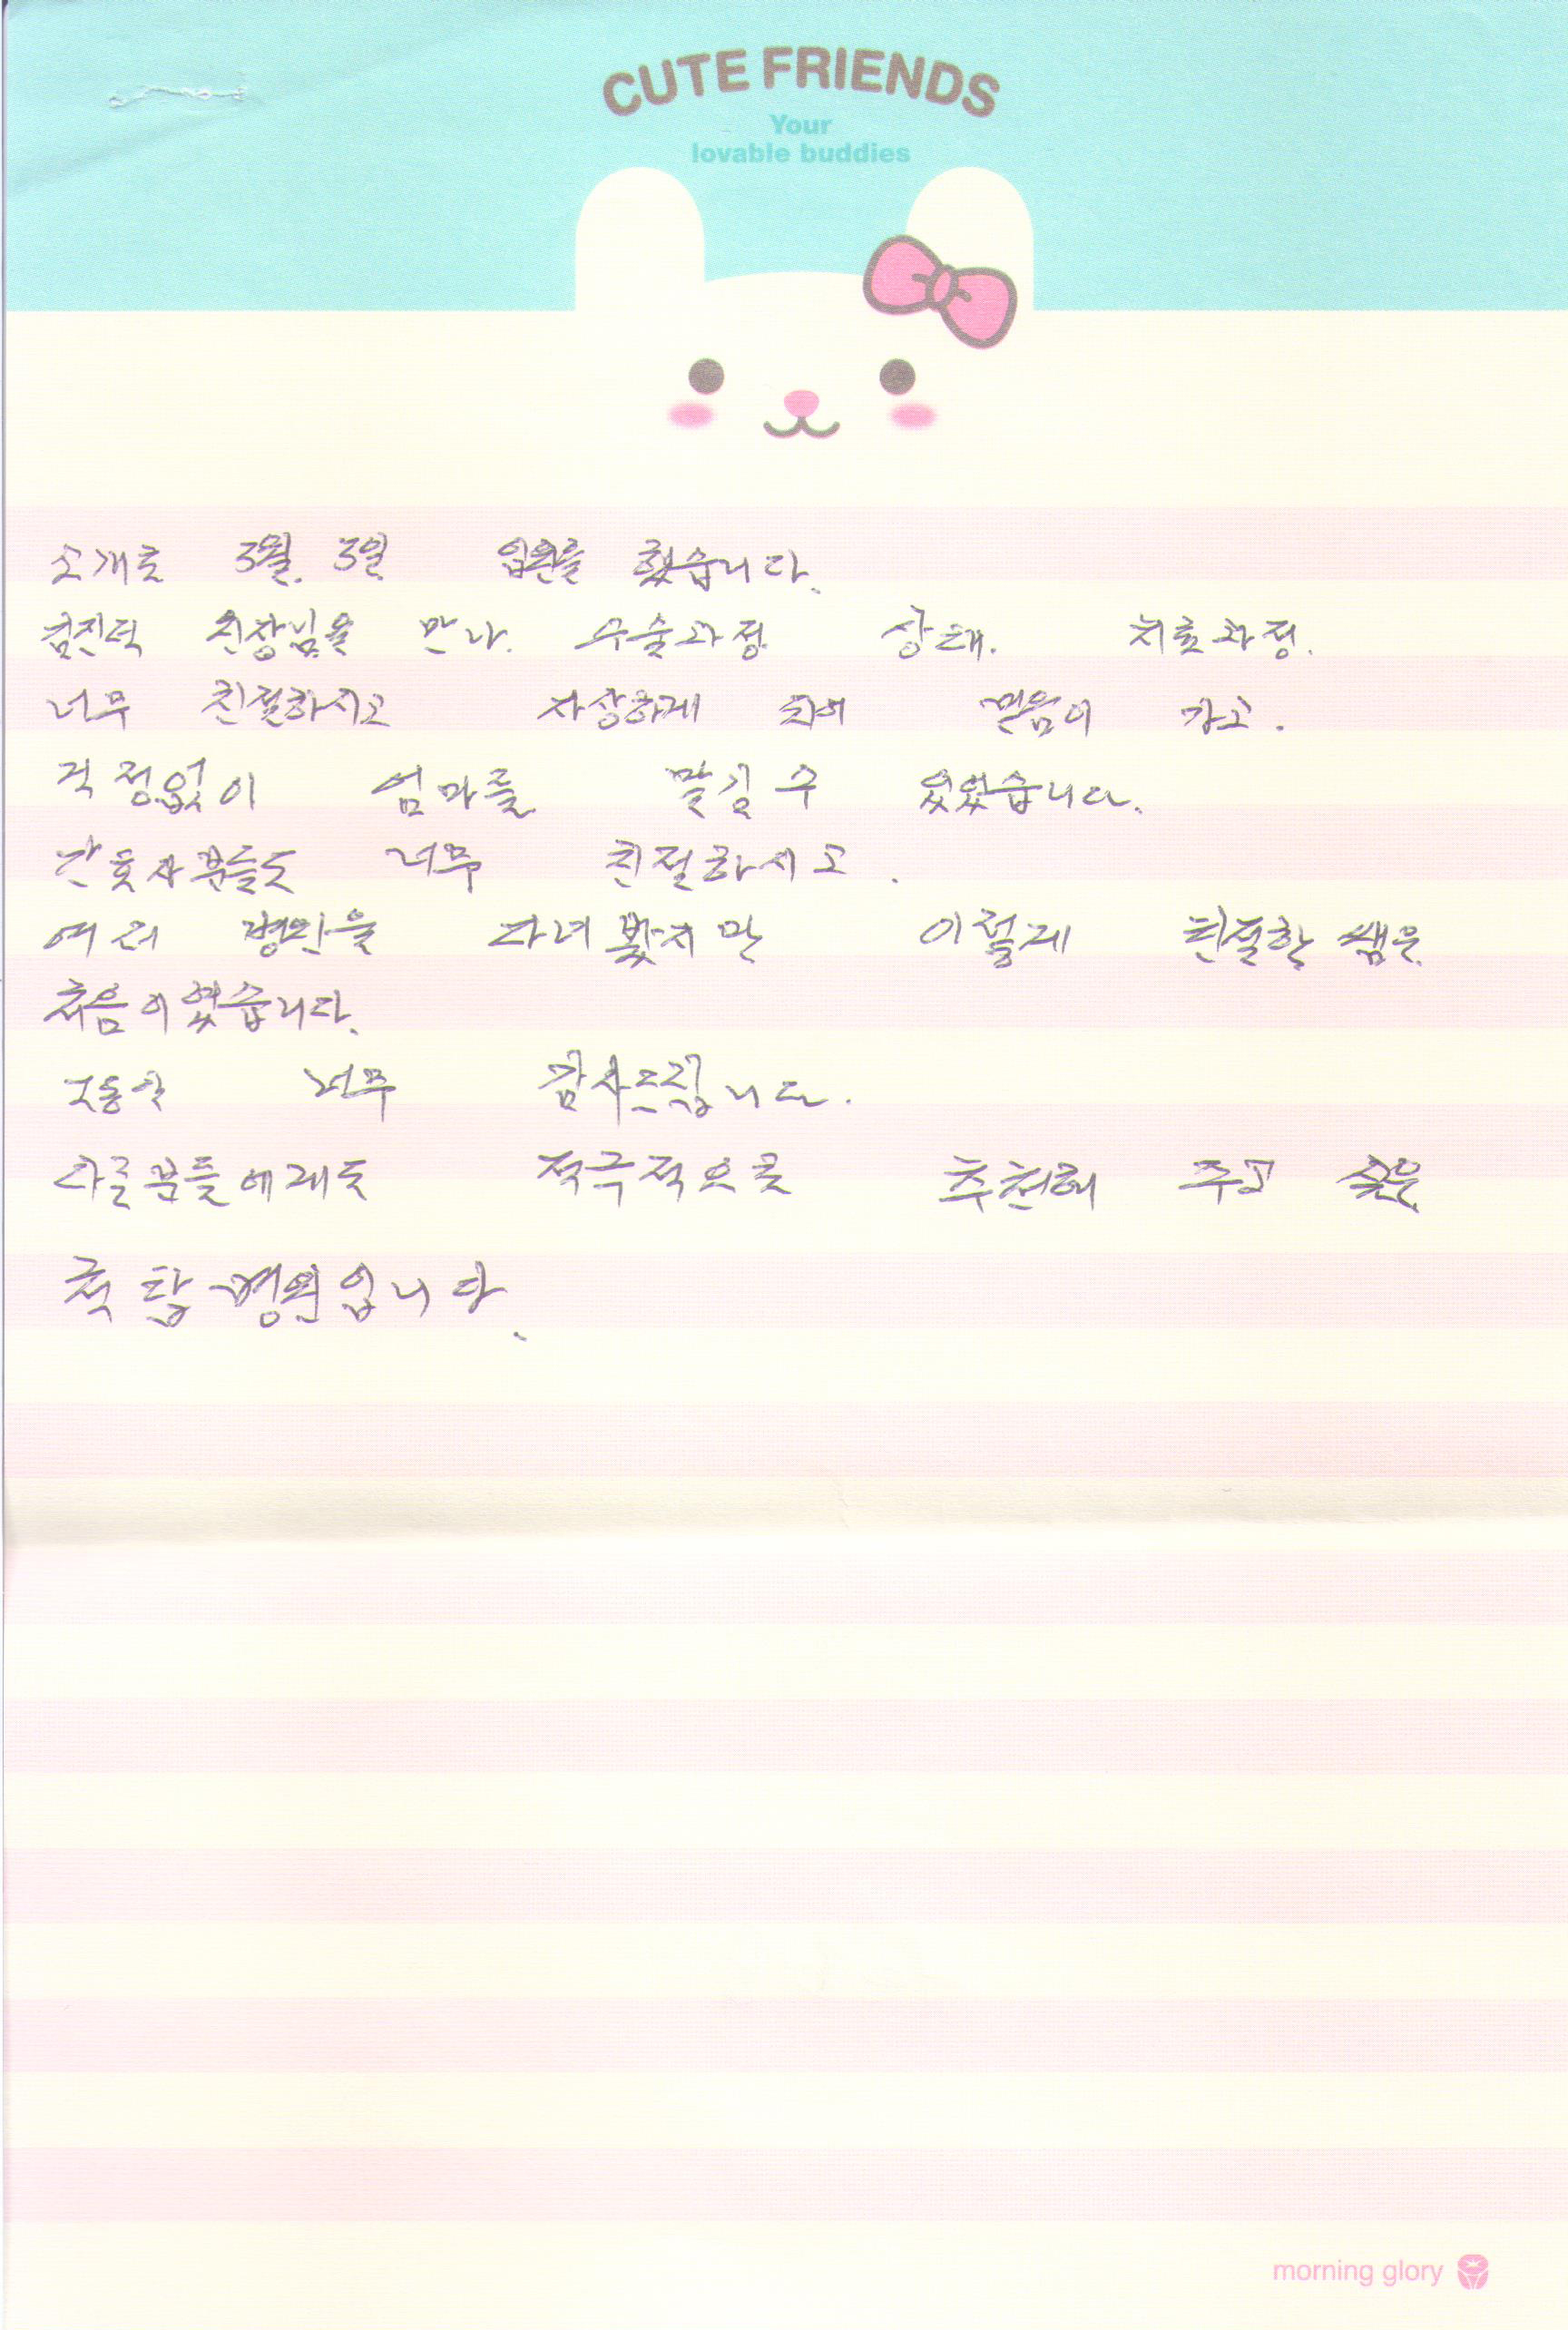 CUTE FRIENDS
Your
lovable buddies
소개로 3월. 3일 입원을 했습니다.
김진덕 원장님을 만나. 수술과정 상태. 치료과정.
너무 친절하시고 자상하게 믿음이 가고.
걱정없이 엄마를 맡길 수 있었습니다.
간호사분들도 너무 친절하시고.
여러 병원을 다녀 봤지만 이렇게 친절한 쌤은
처음이였습니다.
그동안 너무 감사드립니다.
다른분들에게도 적극적으로 추천해 주고 싶은
병원입니다.
morning glory